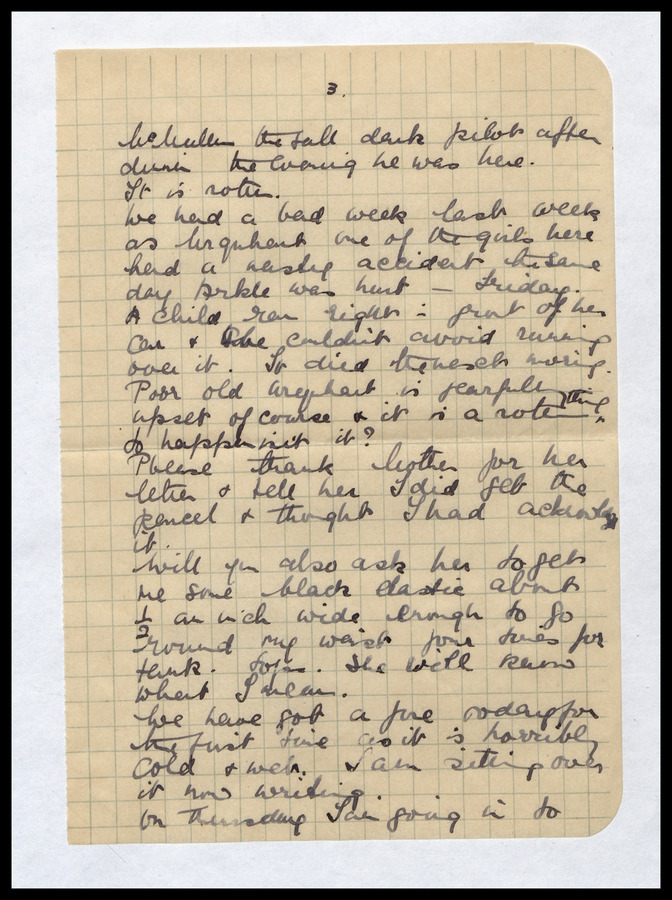 3.
McMullen the tall dark pilot after
during the evening he was here.
It is rotten.
We had a bad week last week
as Urquhart one of the girls here
had a nasty accident the same
day was hurt — Friday.
A child ran right in front of her
car & she couldn't avoid running
over it. It died the next morning.
Poor old Urquhart is fearfully
upset of course & it is a rotten thing
to happen isn't it?
Please thank Mother for her
letter & tell her I did get the
pencil & thought I had acknowledged
it.
Will you also ask her to get
me some black elastic about
1/2 an inch wide enough to go
round my waist four times for
tank. tops. She will know
what I mean.
We have got a fire today for
the first time as it is horribly
cold & wet. I am sitting over
it now writing.
On Thursday I am going in to